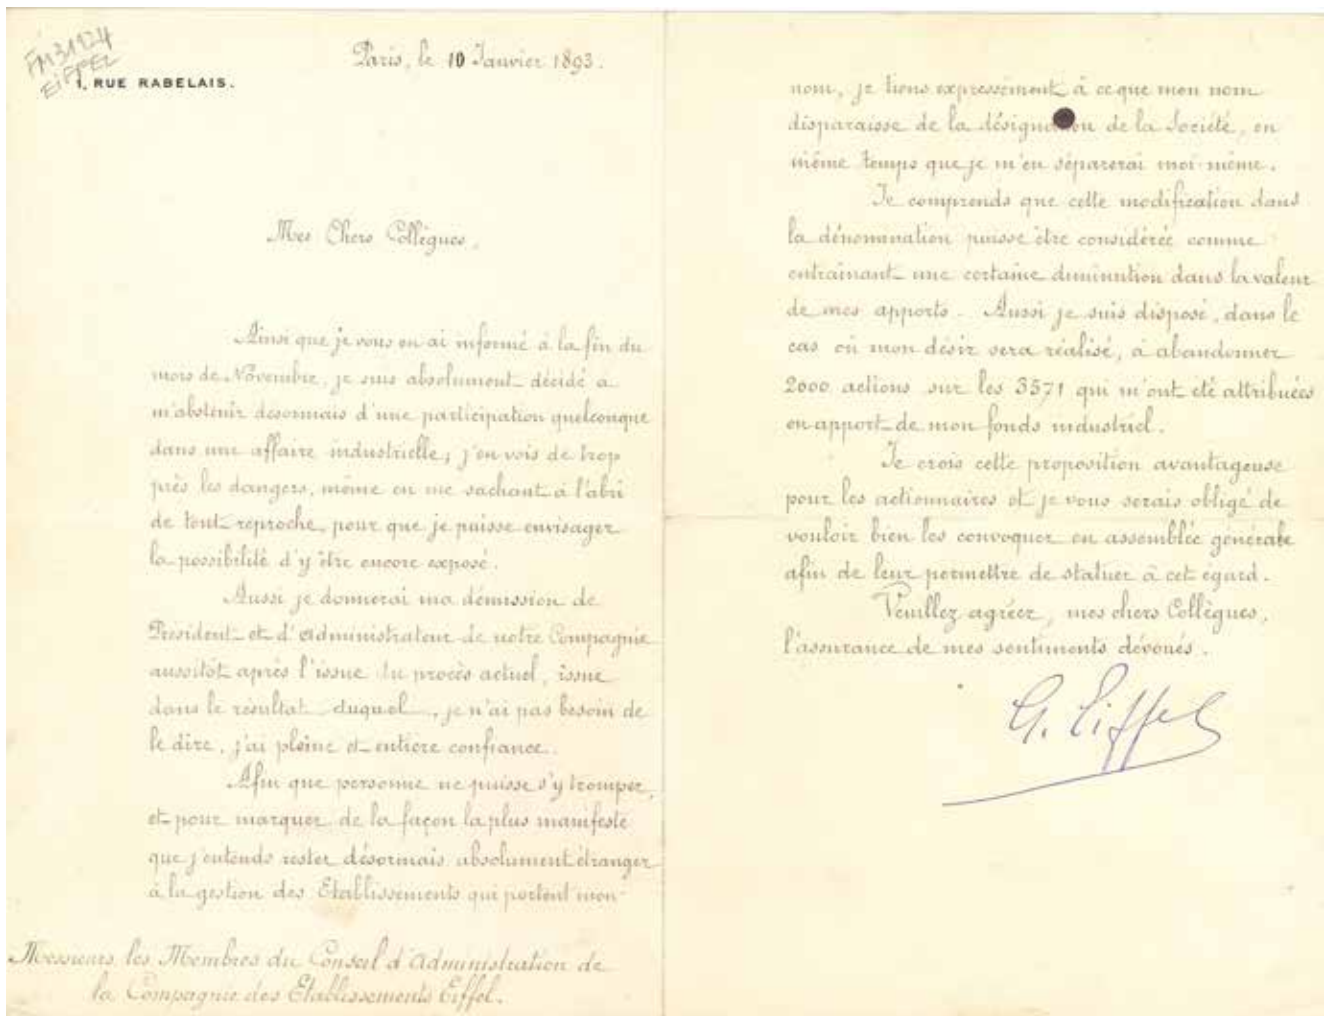 FM 31924
EIFFEL
1, RUE RABELAIS.
Paris, le 10 Janvier 1893.
Mes Chers Collègues,
Ainsi que je vous en ai informé à la fin du
mois de Novembre, je suis absolument décidé à
m'abstenir désormais d'une participation quelconque
dans une affaire industrielle; j'en vois de trop
près les dangers, même en me sachant à l'abri
de tout reproche, pour que je puisse envisager
la possibilité d'y être encore exposé.
Aussi je donnerai ma démission de
Président et d'Administrateur de notre Compagnie
aussitôt après l'issue du procès actuel, issue
dans le résultat duquel, je n'ai pas besoin de
le dire, j'ai pleine et entière confiance.
Afin que personne ne puisse s'y tromper,
et pour marquer de la façon la plus manifeste
que j'entends rester désormais absolument étranger
à la gestion des Etablissements qui portent mon
Messieurs les Membres du Conseil d'Administration de
la Compagnie des Etablissements Eiffel.
nom, je tiens expressément à ce que mon nom
disparaisse de la désignation de la Société, en
même temps que je m'en séparerai moi-même.
Je comprends que cette modification dans
la dénomination puisse être considérée comme
entraînant une certaine diminution dans la valeur
de mes apports. Aussi je suis disposé, dans le
cas où mon désir sera réalisé, à abandonner
2000 actions sur les 3571 qui m'ont été attribuées
en apport de mon fonds industriel.
Je crois cette proposition avantageuse
pour les actionnaires et je vous serais obligé de
vouloir bien les convoquer en assemblée générale
afin de leur permettre de statuer à cet égard.
Veuillez agréer, mes chers Collègues,
l'assurance de mes sentiments dévoués.
G. Eiffel